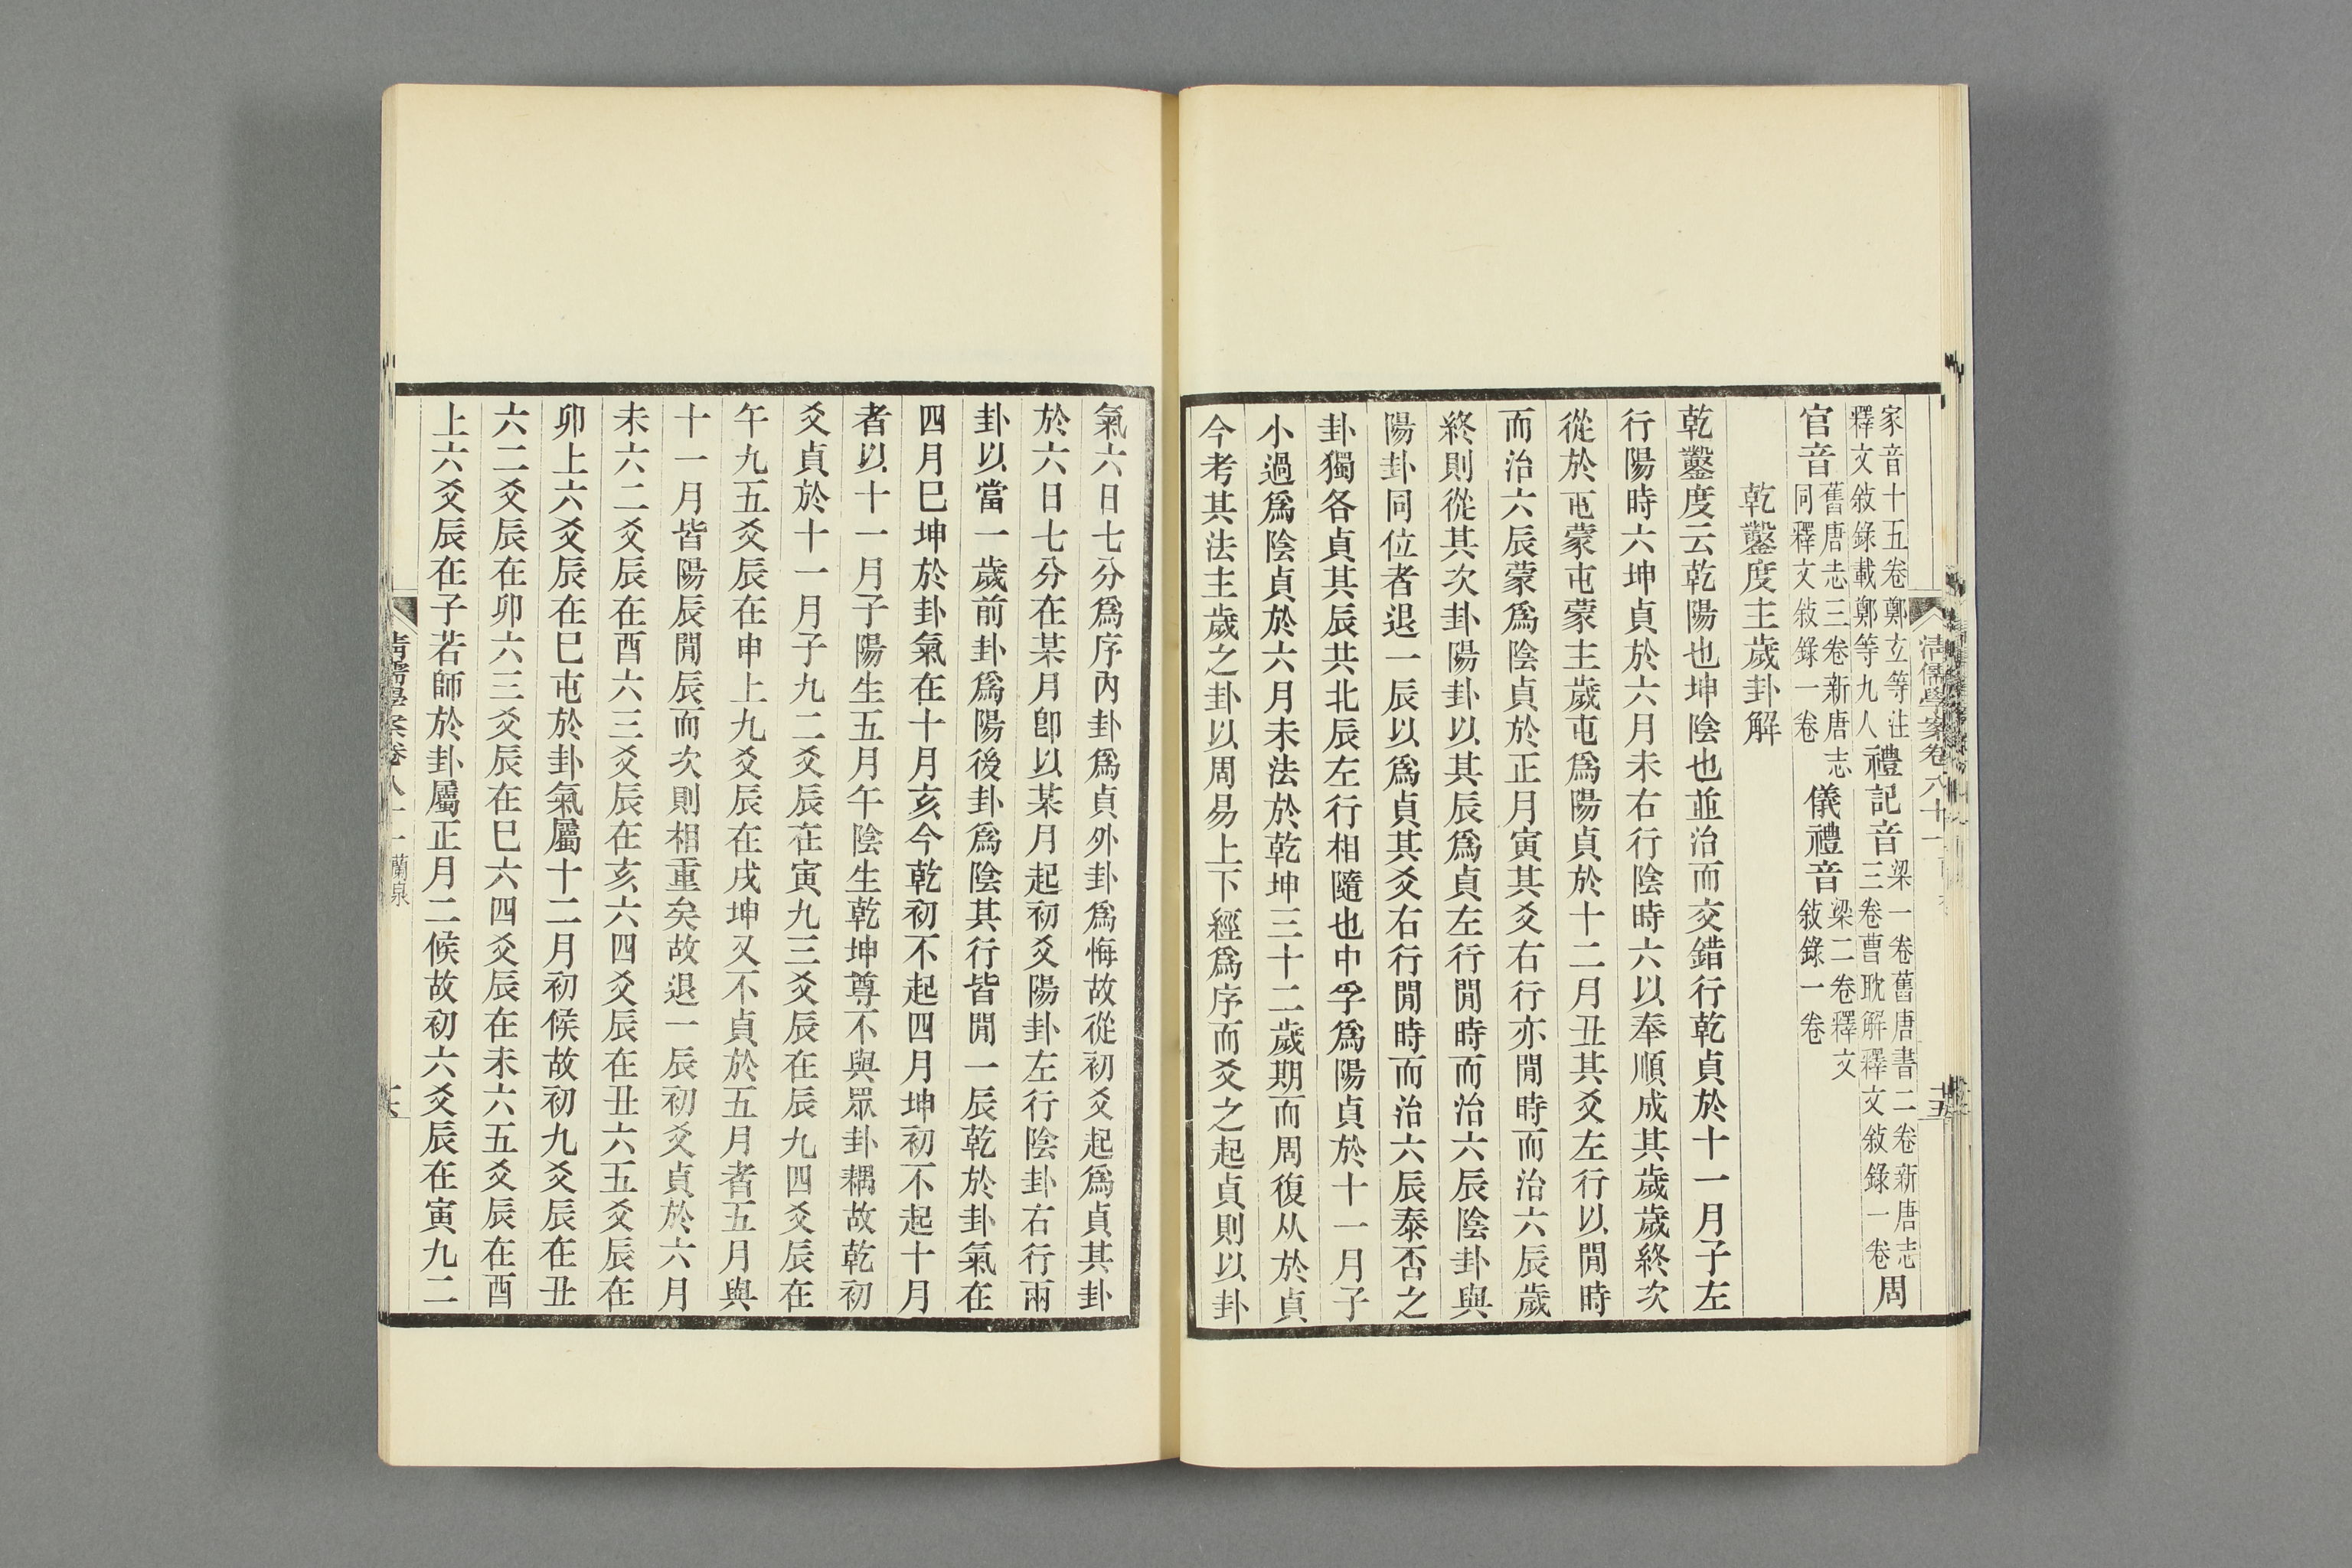 家音十五卷鄭玄等注禮記音梁一卷舊唐書二卷新唐志周
釋文敘錄載鄭等九人三卷曹耽解釋文敘錄一卷
官音舊唐志三卷新唐志儀禮音梁二卷釋文
同釋文敘錄一卷敘錄一卷
乾鑿度主歲卦解
乾鑿度云乾陽也坤陰也並治而交錯行乾貞於十一月子左
行陽時六坤貞於六月未右行陰時六以奉順成其歲歲終次
從於屯蒙屯蒙主歲屯爲陽貞於十二月丑其爻左行以閒時
而治六辰蒙爲陰貞於正月寅其爻右行亦閒時而治六辰歲
終則從其次卦陽卦以其辰爲貞左行閒時而治六辰陰卦與
陽卦同位者退一辰以爲貞其爻右行閒時而治六辰泰否之
卦獨各貞其辰共北辰左行相隨也中孚爲陽貞於十一月子
小過爲陰貞於六月未法於乾坤三十二歲期而周復从於貞
今考其法主歲之卦以周易上下經爲序而爻之起貞則以卦
清儒學案卷八十一
十五
氣六日七分爲序內卦爲貞外卦爲悔故從初爻起爲貞其卦
於六日七分在某月卽以某月起初爻陽卦左行陰卦右行兩
卦以當一歲前卦爲陽後卦爲陰其行皆閒一辰乾於卦氣在
四月巳坤於卦氣在十月亥今乾初不起四月坤初不起十月
者以十一月子陽生五月午陰生乾坤尊不與眾卦耦故乾初
爻貞於十一月子九二爻辰在寅九三爻辰在辰九四爻辰在
午九五爻辰在申上九爻辰在戌坤又不貞於五月者五月與
十一月皆陽辰閒辰而次則相重矣故退一辰初爻貞於六月
未六二爻辰在酉六三爻辰在亥六四爻辰在丑六五爻辰在
卯上六爻辰在巳屯於卦氣屬十二月初候故初九爻辰在丑
六二爻辰在卯六三爻辰在巳六四爻辰在未六五爻辰在酉
上六爻辰在子若師於卦屬正月二候故初六爻辰在寅九二
清儒學案卷八十一 蘭泉